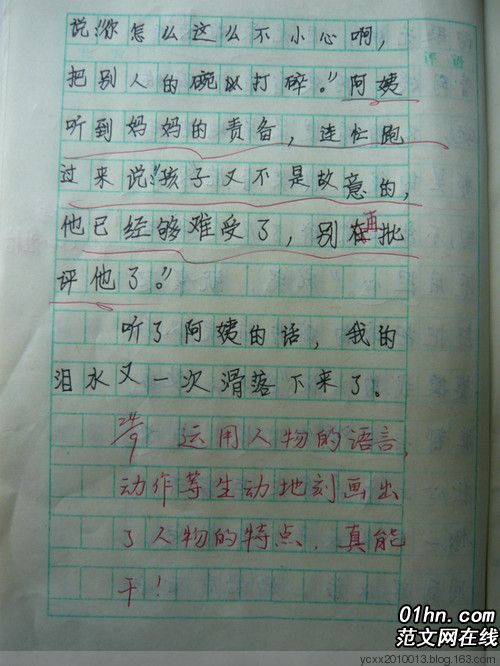 说:"你怎么这么不小心啊,
把别人的碗以打碎。"阿姨
听到妈妈的责备,连忙跑
过来说:"孩子又不是故意的,
他已经够难受了,别在再批
评他了。"
听了阿姨的话,我的
泪水又一次滑落下来了。
运用人物的语言,
动作等生动地刻画出
了人物的特点.真能
干!
01hn.com
范文网在线
ycxx2010013.blog.163.com